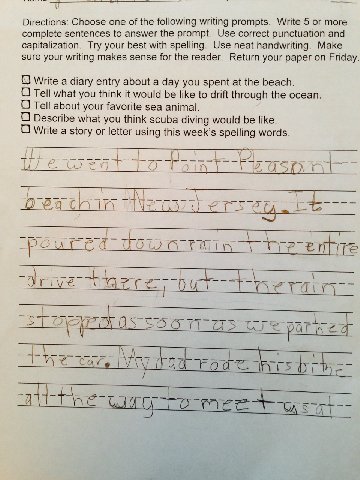 Directions: Choose one of the following writing prompts. Write 5 or more
complete sentences to answer the prompt. Use correct punctuation and
capitalization. Try your best with spelling. Use neat handwriting. Make
sure your writing makes sense for the reader. Return your paper on Friday.
Write a diary entry about a day you spent at the beach.
Tell what you think it would be like to drift through the ocean.
Tell about your favorite sea animal.
Describe what you think scuba diving would be like.
Write a story or letter using this week's spelling words.
We went to Point Pleasant
beach in New Jersey. It
poured down rain the entire
drive there, but the rain
stopped as soon as we parked
the car. My dad rode his bike
all the way to meet us at